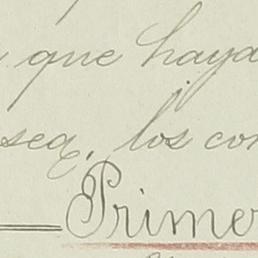 que haya
seq, los con
Primer